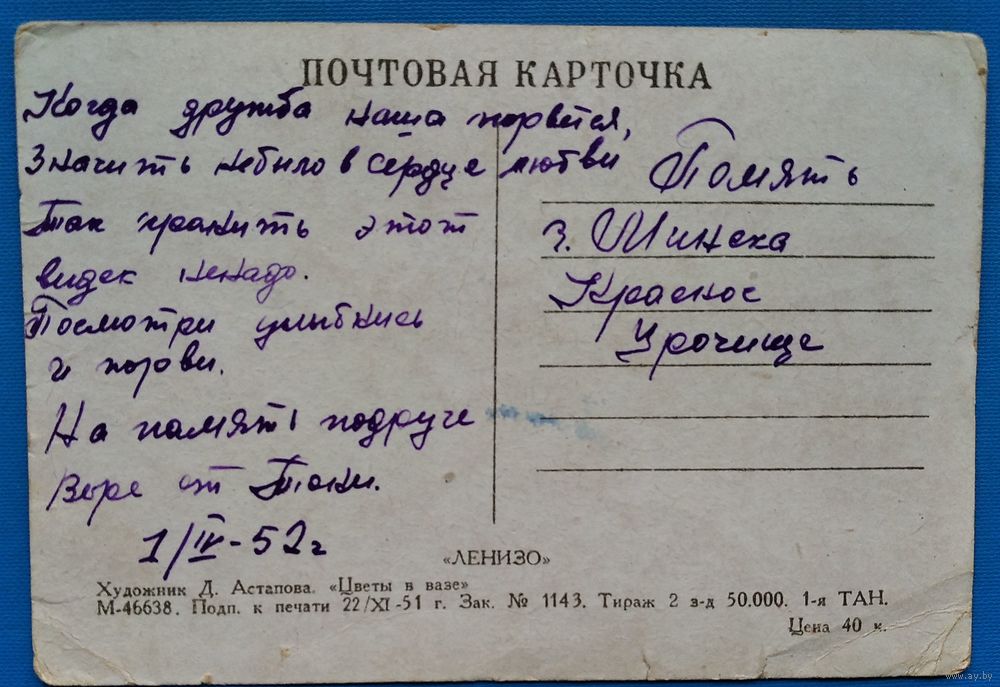 ПОЧТОВАЯ КАРТОЧКА
Когда дружба наша порвется,
Значить небыло в сердце любви
Так хранить этот
видек ненадо.
Посмотри улыбнись
и порви.
На память подруге
Вере от Тони.
1/IV-52г
Память
г. Минска
Красное
Урочище
«ЛЕНИЗО»
Художник Д. Астапова. «Цветы в вазе»
М-46638. Подп. к печати 22/XI-51 г. Зак. № 1143. Тираж 2 з-д 50.000. 1-я ТАН.
Цена 40 к.
www.ay.by